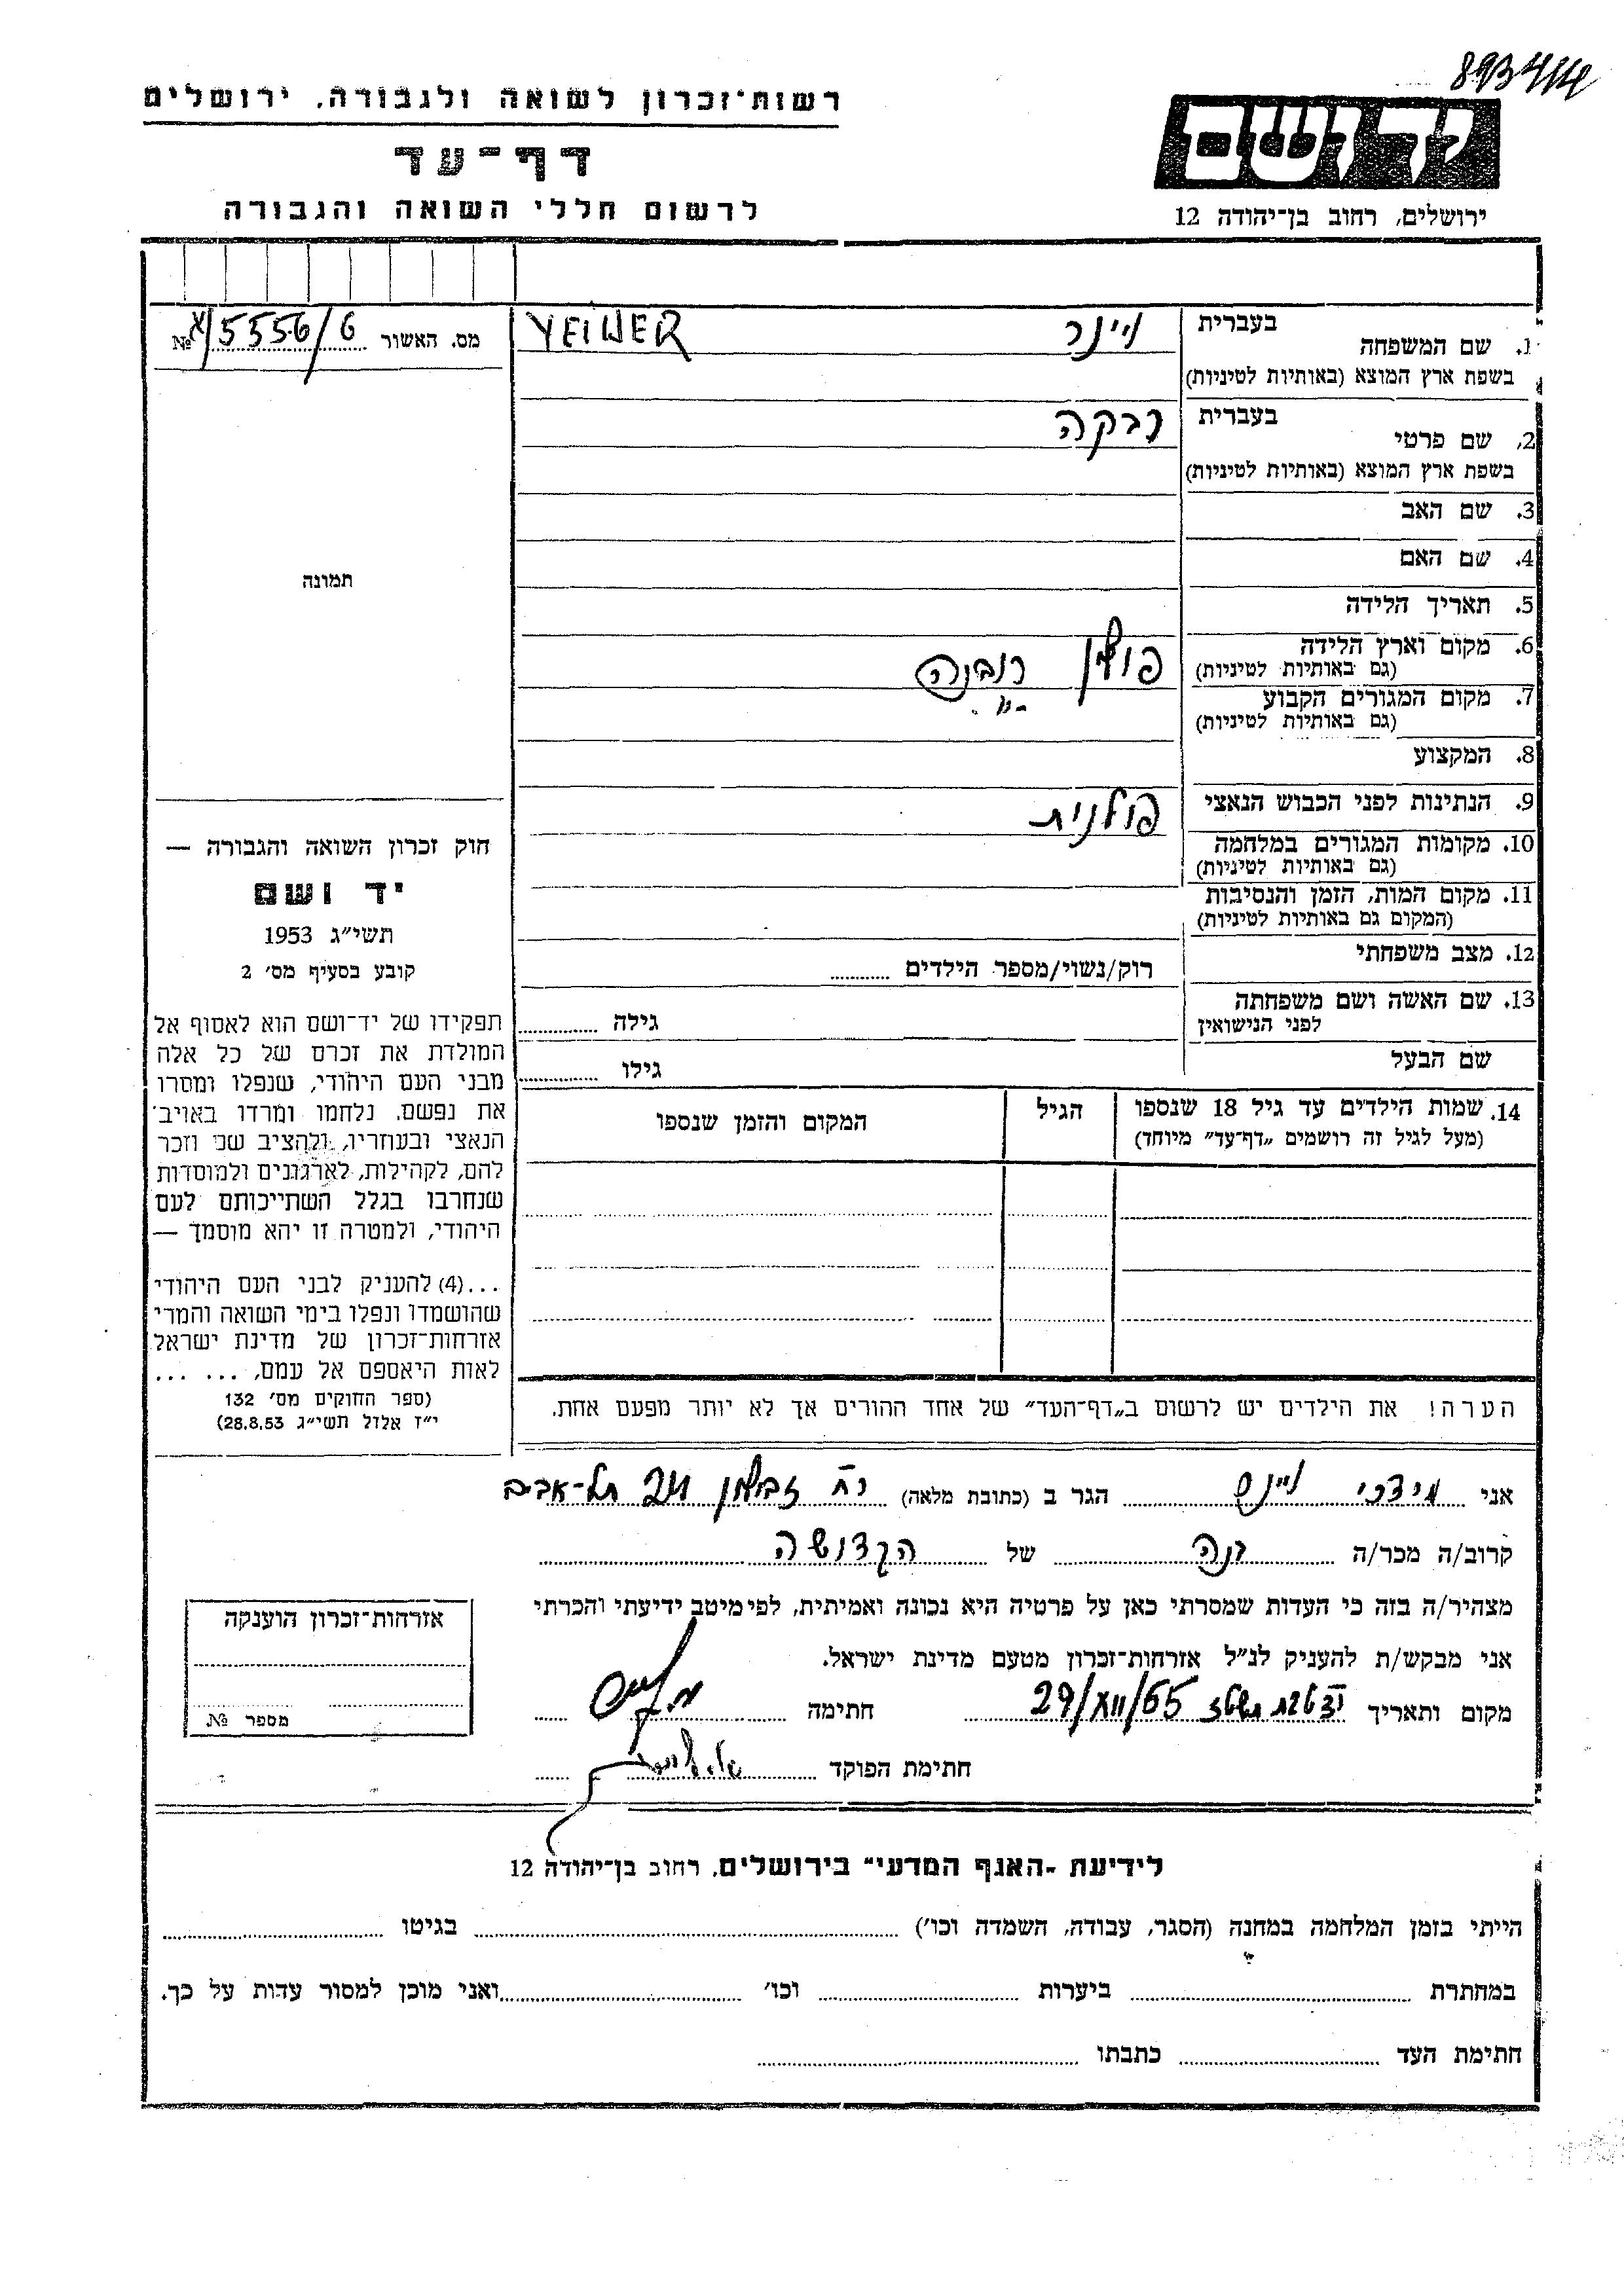 893414
רשות־זכרון לשואה ולגבורה, ירושלים
דף־עד
לרשום חללי השואה והגבורה
יד ושם
ירושלים, רחוב בן־יהודה 12
מס. האשור 5556/6 №
תמונה
חוק זכרון השואה והגבורה —
יד ושם
תשי״ג 1953
קובע בסעיף מס׳ 2
תפקידו של יד־ושם הוא לאסוף אל
המולדת את זכרם של כל אלה
מבני העם היהודי, שנפלו ומסרו
את נפשם, נלחמו ומרדו באויב
הנאצי ובעוזריו, ולהציב שם וזכר
להם, לקהילות, לארגונים ולמוסדות
שנחרבו בגלל השתייכותם לעם
היהודי, ולמטרה זו יהא מוסמך —
...(4) להעניק לבני העם היהודי
שהושמדו ונפלו בימי השואה והמרי
אזרחות־זכרון של מדינת ישראל
לאות היאספם אל עמם, ... ...
(ספר החוקים מס׳ 132
י״ז אלול תשי״ג 28.8.53)
1. שם המשפחה בעברית ויינר YEINER
בשפת ארץ המוצא (באותיות לטיניות)
2. שם פרטי בעברית רבקה
בשפת ארץ המוצא (באותיות לטיניות)
3. שם האב
4. שם האם
5. תאריך הלידה
6. מקום וארץ הלידה
(גם באותיות לטיניות) פולין רובנה
7. מקום המגורים הקבוע
(גם באותיות לטיניות) -״-
8. המקצוע
9. הנתינות לפני הכבוש הנאצי פולנית
10. מקומות המגורים במלחמה
(גם באותיות לטיניות)
11. מקום המות, הזמן והנסיבות
(המקום גם באותיות לטיניות)
12. מצב משפחתי רוק/נשוי/מספר הילדים
13. שם האשה ושם משפחתה
לפני הנישואין גילה
שם הבעל גילו
14. שמות הילדים עד גיל 18 שנספו הגיל המקום והזמן שנספו
(מעל לגיל זה רושמים „דף־עד״ מיוחד)
הערה! את הילדים יש לרשום ב„דף־העד״ של אחד ההורים אך לא יותר מפעם אחת.
אני הגר ב (כתובת מלאה) רח זבולון תל-אביב
קרוב/ה מכר/ה של הקדושה
מצהיר/ה בזה כי העדות שמסרתי כאן על פרטיה היא נכונה ואמיתית, לפי מיטב ידיעתי והכרתי
אני מבקש/ת להעניק לנ״ל אזרחות־זכרון מטעם מדינת ישראל.
מקום ותאריך טבת תשטז 29/XII/55 חתימה
חתימת הפוקד
אזרחות־זכרון הוענקה
מספר №
לידיעת ״האגף המדעי״ בירושלים, רחוב בן־יהודה 12
הייתי בזמן המלחמה במחנה (הסגר, עבודה, השמדה וכו׳) בגיטו
במחתרת ביערות וכו׳ ואני מוכן למסור עדות על כך.
חתימת העד כתבתו